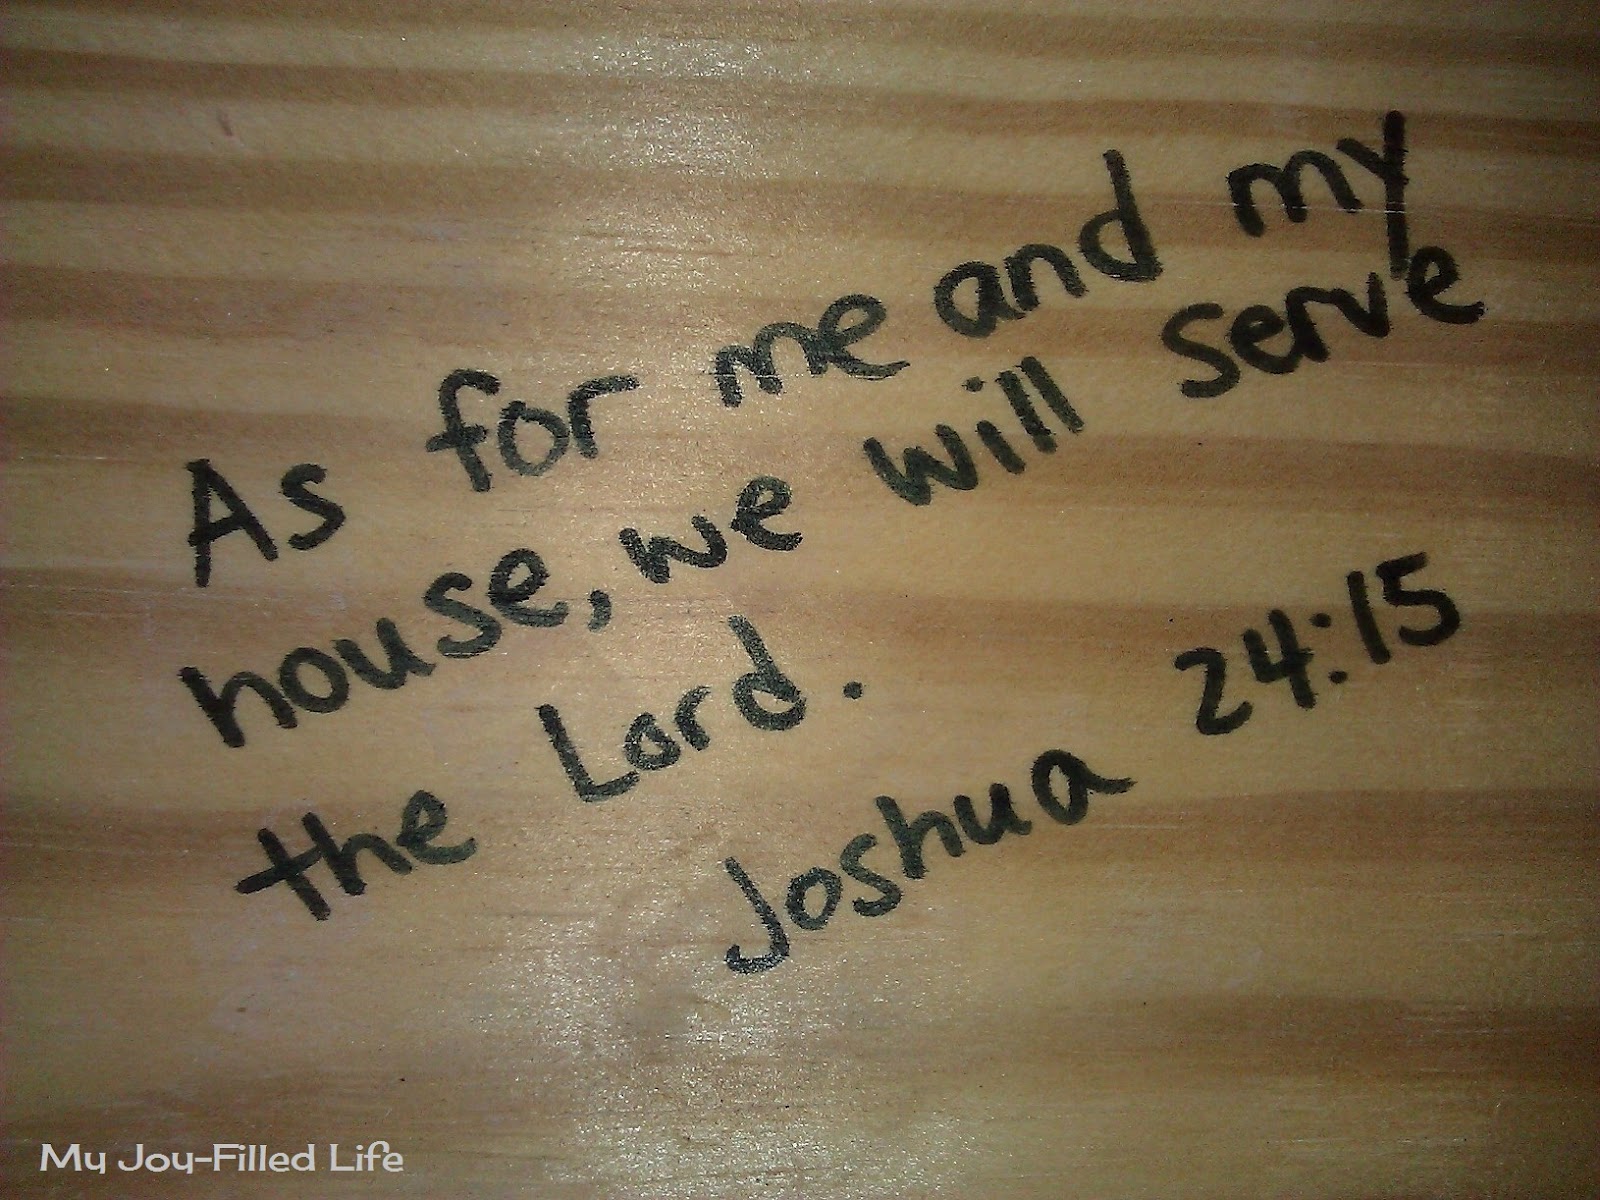 As for me and my
house, we will serve
the Lord.
Joshua 24:15
My Joy-Filled Life